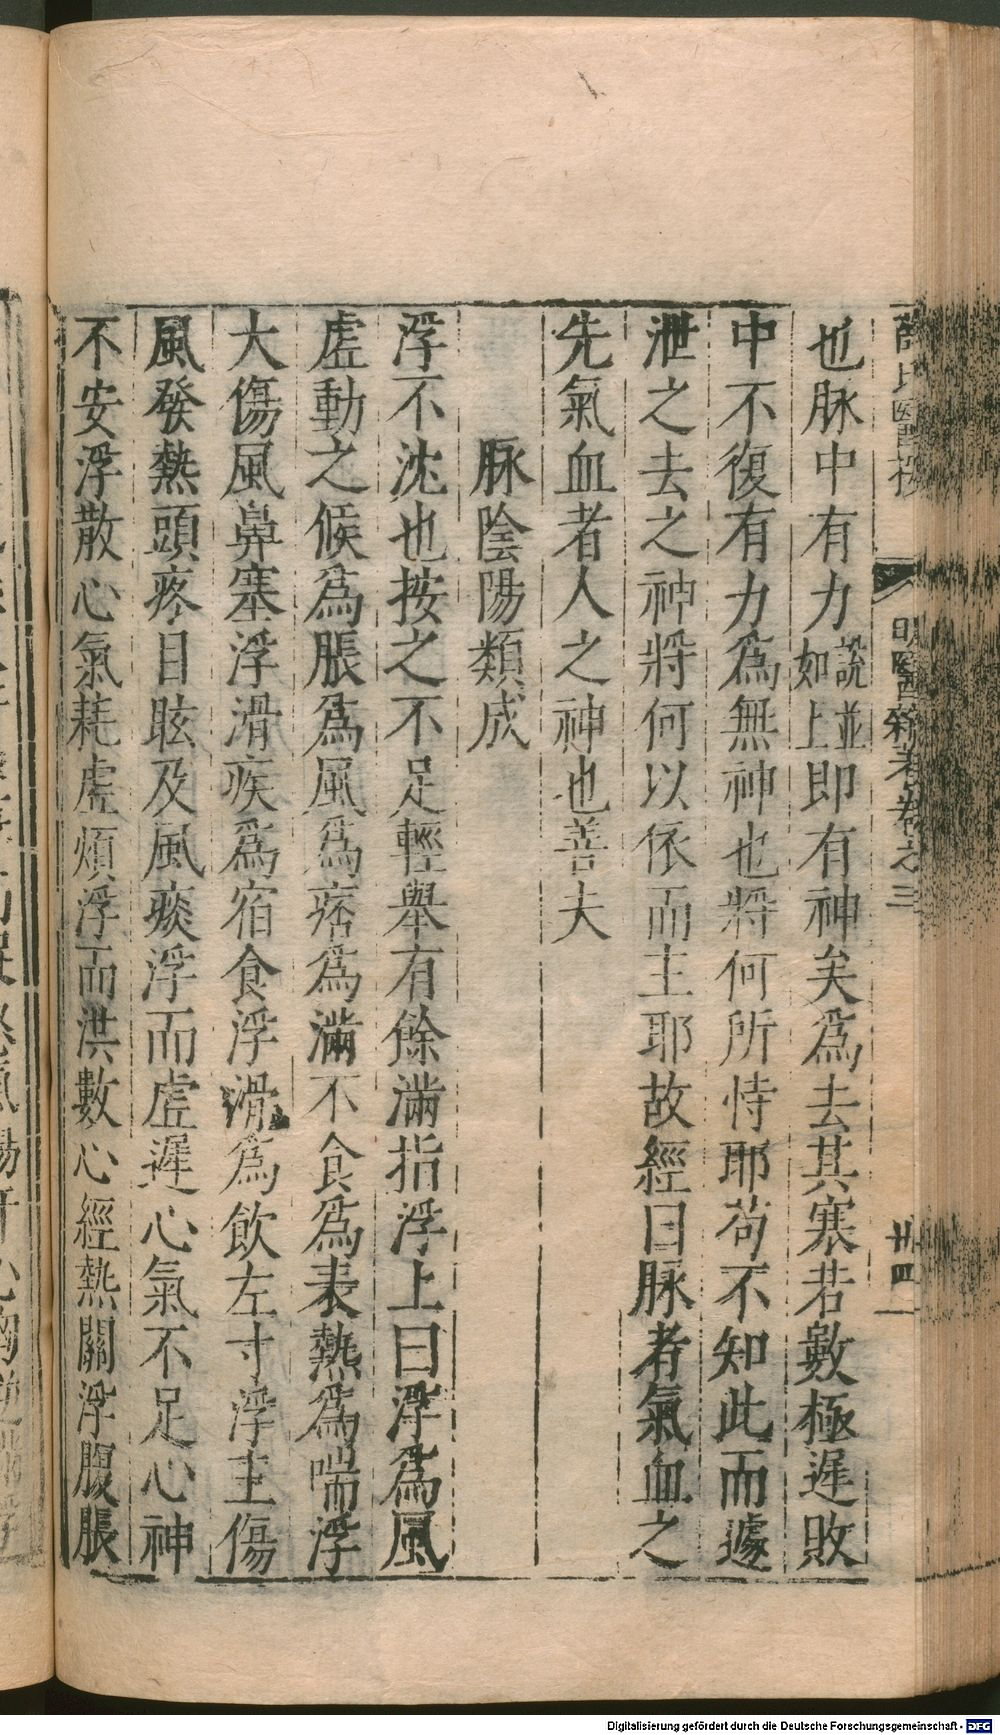 薛氏醫按
明醫雜著卷之三
廿四
也脉中有力說並如上即有神矣爲去其寒若數極遲敗
中不復有力爲無神也將何所恃耶苟不知此而遽
泄之去之神將何以依而主耶故經曰脉者氣血之
先氣血者人之神也善夫
脉陰陽類成
浮不沈也按之不足輕舉有餘滿指浮上曰浮爲風
虛動之候爲脹爲風爲痞爲滿不食爲表熱爲喘浮
大傷風鼻塞浮滑疾爲宿食浮滑爲飲左寸浮主傷
風發熱頭疼目眩及風痰浮而虛遲心氣不足心神
不安浮散心氣耗虛煩浮而洪數心經熱關浮腹脹
Digitalisierung gefördert durch die Deutsche Forschungsgemeinschaft - DFG